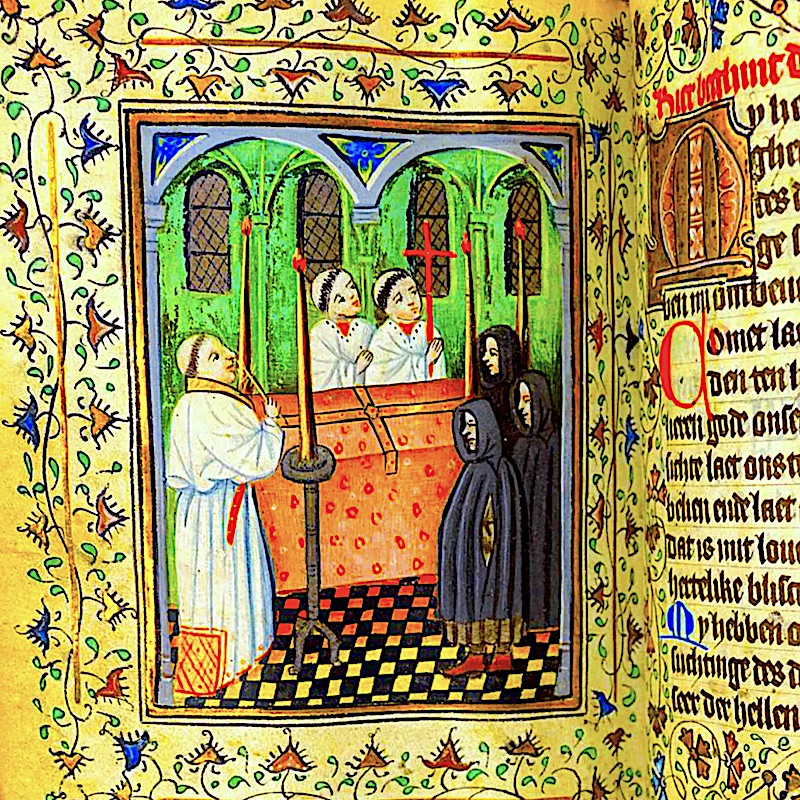 Hier beghint d
My he
ghe
des d
ge s
ben mi ombeu
Comet lae
den ten h
heren gode onse
sichte laet ons te
belien ende laet
dat is mit lou
hertelike blisc
My hebben o
suchtinge des d
seer der hellen